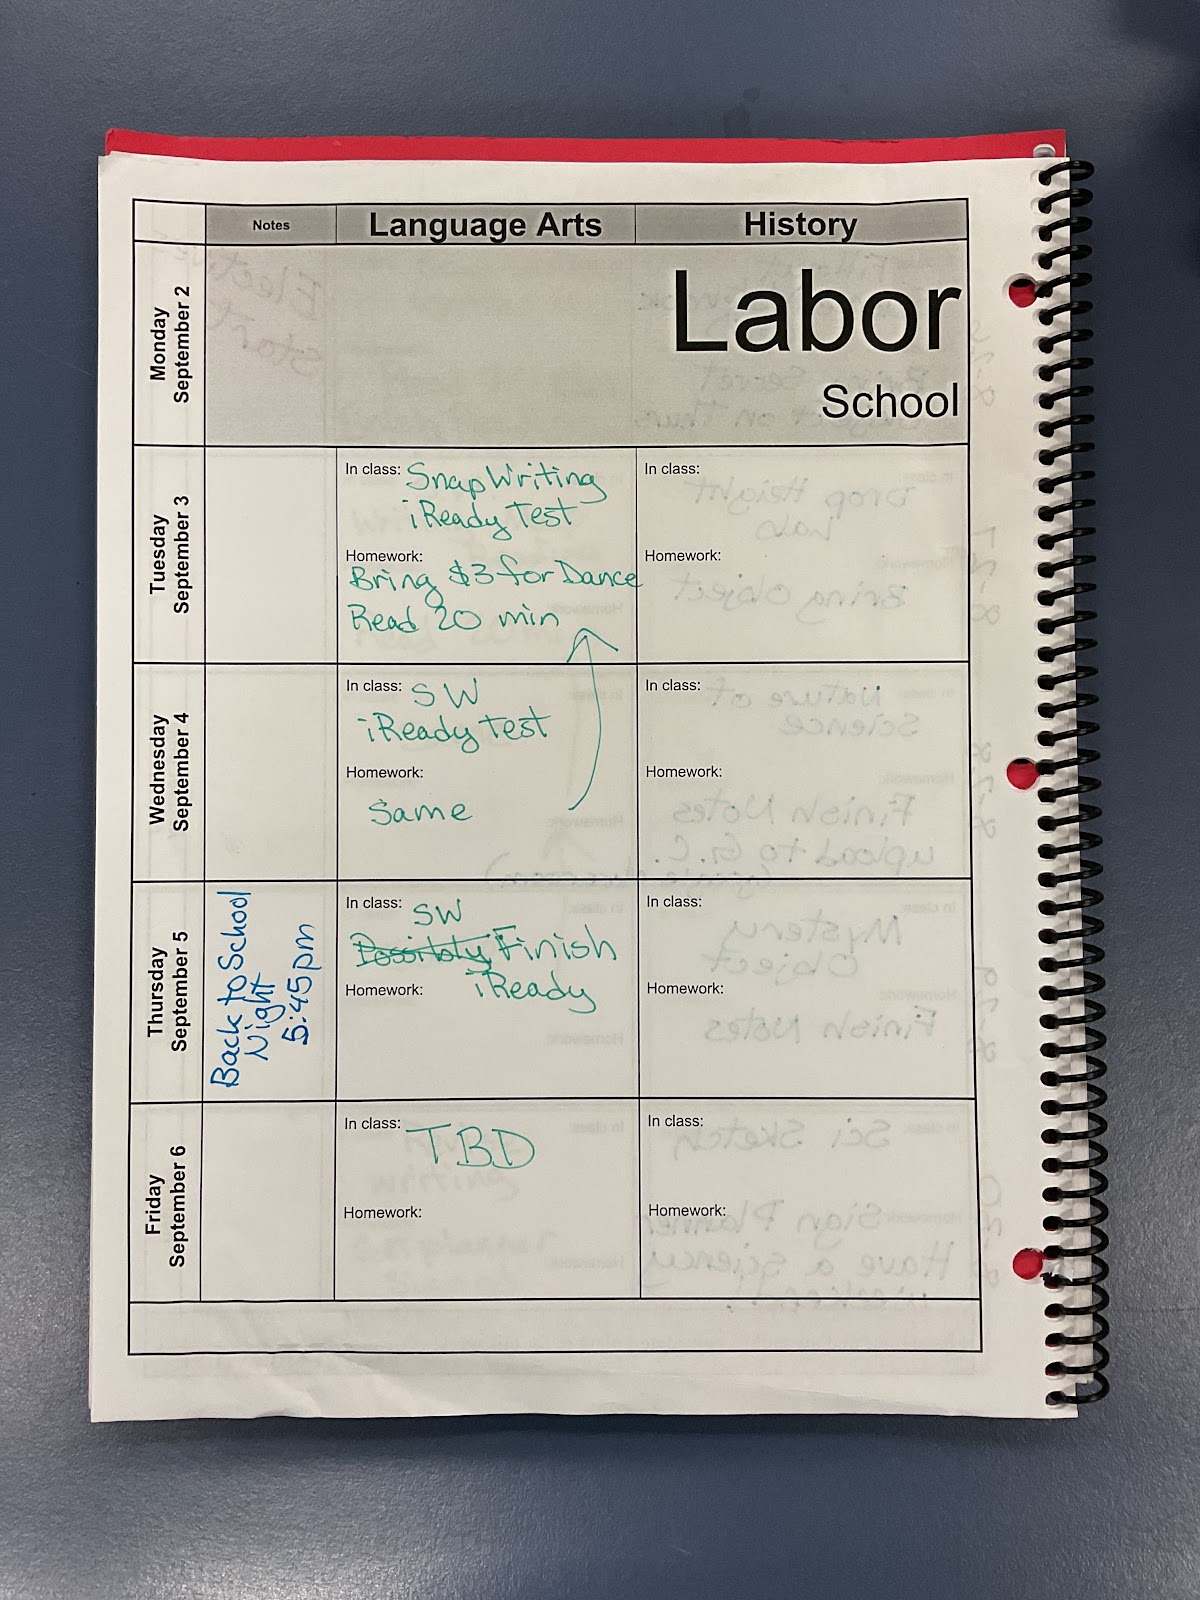 Notes Language Arts History
Monday
September 2
Labor
School
Tuesday
September 3
In class: Snap Writing
iReady Test
Homework:
Bring $3 for Dance
Read 20 min
In class:
Homework:
Wednesday
September 4
In class: SW
iReady Test
Homework:
Same
In class:
Homework:
Thursday
September 5
Back to School
Night
5:45pm
In class: SW
Possibly Finish
iReady
Homework:
In class:
Homework:
Friday
September 6
In class: TBD
Homework:
In class:
Homework: